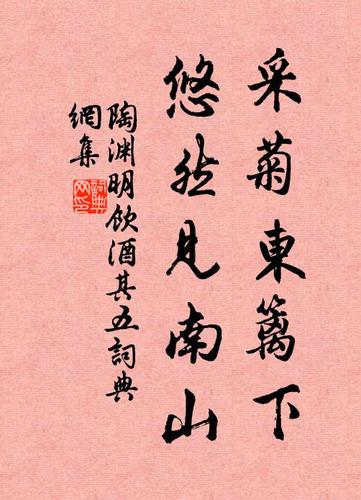 采菊東篱下
悠然见南山
陶渊明飲酒其五詞典
網集
詞典
网印